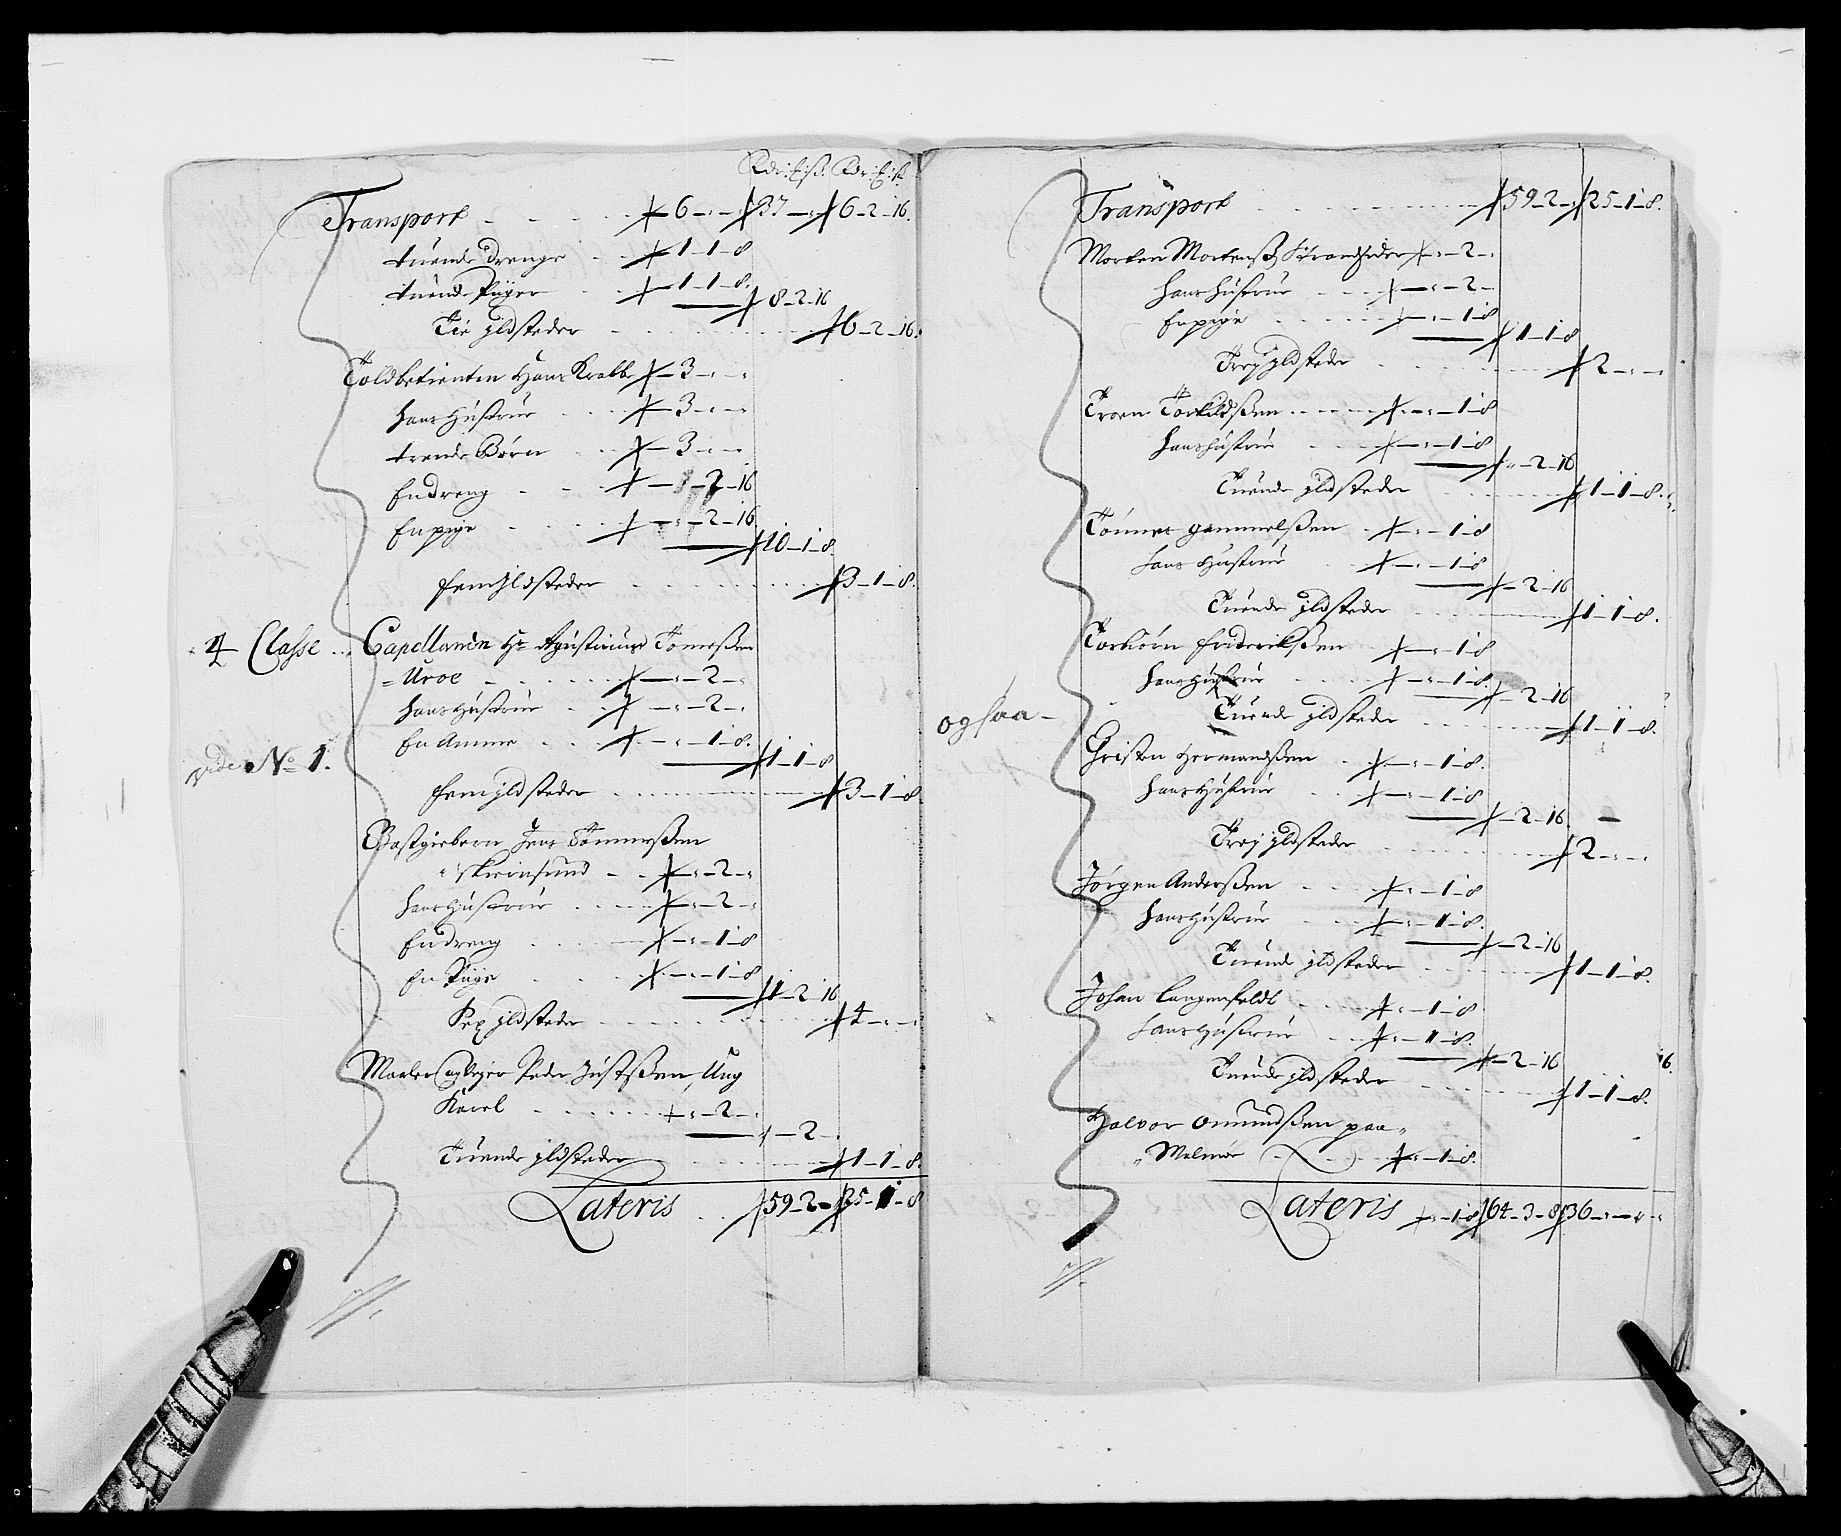 Rdr: Ort ß: Rdr: Ort ß:
Transport - - - - 6 - „ - „ 37 - „ 6 - 2 - 16.
tuende drenge - - 1 - 1 - 8
tuende Piiger - - 1 - 1 - 8.
8 - 2 - 16
Tie ildsteder - - - - 6 - 2 - 16.
Toldbetienten Hans Krabbe - 3 - „ - „
hans Hustrue - - - 3 - „ - „
trende Børn - - - 3 - „ - „
En dreng - - - - 2 - 16
En pige - - - - „ - 2 - 16
10 - 1 - 8.
fem Ildsteder - - - - 3 - 1 - 8.
4 Classe .. Capellanen Hr Agustinus Tomeßen
= Uroe - - - - - „ - 2 - „
hans Hustrue - - - „ - 2 - „
En Amme - - - - „ - 1 - 8.
vide No 1.
1 - 1 - 8
fem ildsteder - - - - 3 - 1 - 8
Gastgiebern Jens Tommeßen
i Skiernsund - - - „ - 2 - „
hans Hustrue - - - - „ - 2 - „
En dreng - - - - „ - 1 - 8
En Piige - - - - „ - 1 - 8
1 - 2 - 16
Sex ildsteder - - - - 4 - „ - „
Maaler og Vejer Peder Justßen, Ung
Karel - - - - - „ - 2 - „
- 2 -
Tuende ildsteder - - - - 1 - 1 - 8.
Lateris - - 59 - 2 - 25 - 1 - 8
Transport - - - - 59 - 2 - „ 25 - 1 - 8.
Morten Mortenß Strandsider - „ - 2 - „
hans hustrue - - - „ - 2 -
En pige - - - - „ - 1 - 8
1 - 1 - 8
Trej ildsteder - - - - 2 - „ - „
Troen Torkildßen - - - - „ - 1 - 8
hans hustrue - - - „ - 1 - 8
„ - 2 - 16
Tuende ildsteder - - - - 1 - 1 - 8.
Tønnes gammelßen - - „ - 1 - 8
hans Hustrue - - „ - 1 - 8
- 2 - 16
Tuende ildsteder - - - - 1 - 1 - 8.
Torbiørn fridrikßen - - „ - 1 - 8
hans Hustrue - - - „ - 1 - 8.
- 2 - 16
ogsaa -
Tuende ildsteder - - - - 1 - 1 - 8.
Christen Hermandßen - - „ - 1 - 8.
hans Hustrue - - - „ - 1 - 8
- 2 - 16.
Trej ildsteder - - - - 2 - „ - „
Jörgen Anderßen - - - „ - 1 - 8
hans hustrue - - - „ - 1 - 8.
- 2 - 16
Tuende ildsteder - - - - 1 - 1 - 8.
Johan Langenfeldt - - - „ - 1 - 8
hans Hustrue - - - „ - 1 - 8.
- 2 - 16
16.
Tuende ildsteder - - - - 1 - 1 - 8.
Halvor omundßen paa „
„ Malmøe - - - - „ - 1 - 8.
Lateris - „ - 1 - 8 64 - 3 - 8 36 - „ - „